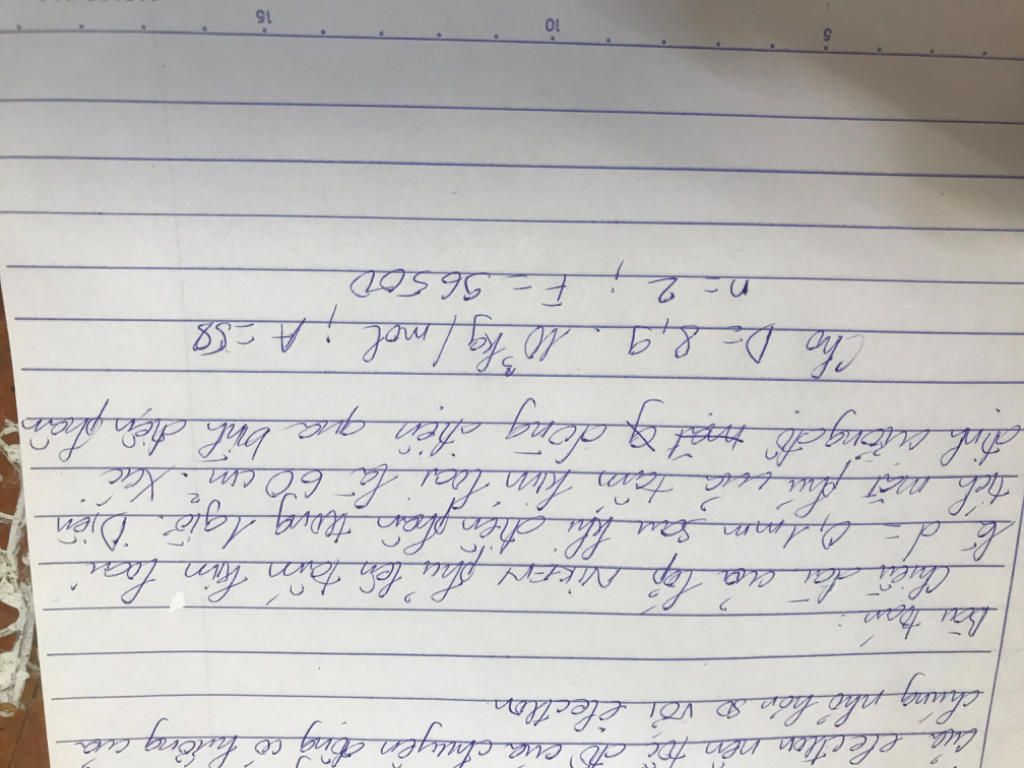 của electron nên tốc độ của chuyển động có hướng của
chúng nhỏ hơn so với electron.
Bài toán:
Chiều dài của lớp NIKEN phủ lên tấm kim loại
là d = 0,1mm sau khi điện phân trong 1 giờ. Diện
tích mặt phủ của tấm kim loại là 60 cm². Xác
định cường độ dòng điện qua bình điện phân
Cho D = 8,9 . 10³ kg/mol ; A = 58
n = 2 ; F = 96500
5 10 15